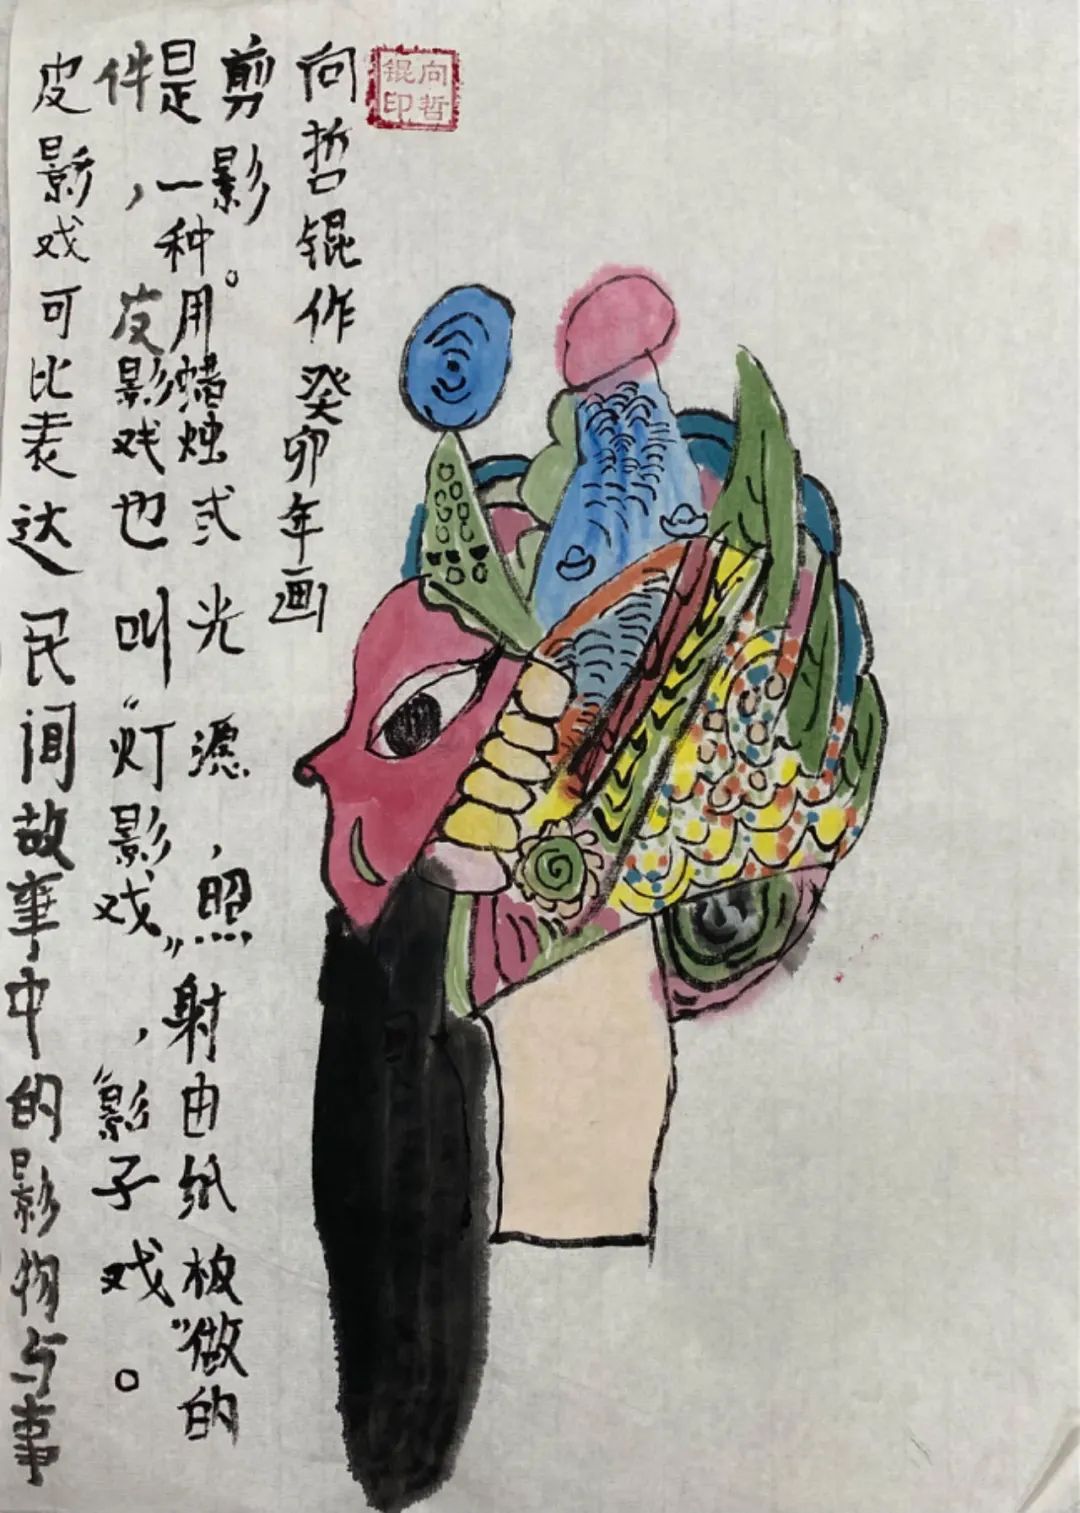 皮影戏可比表达民间故事中的影物与事
件，皮影戏也叫“灯影戏”，“影子戏。
是一种用蜡烛式光源，照射由纸板”做的
剪影。
向哲锟作癸卯年画
向哲锟印